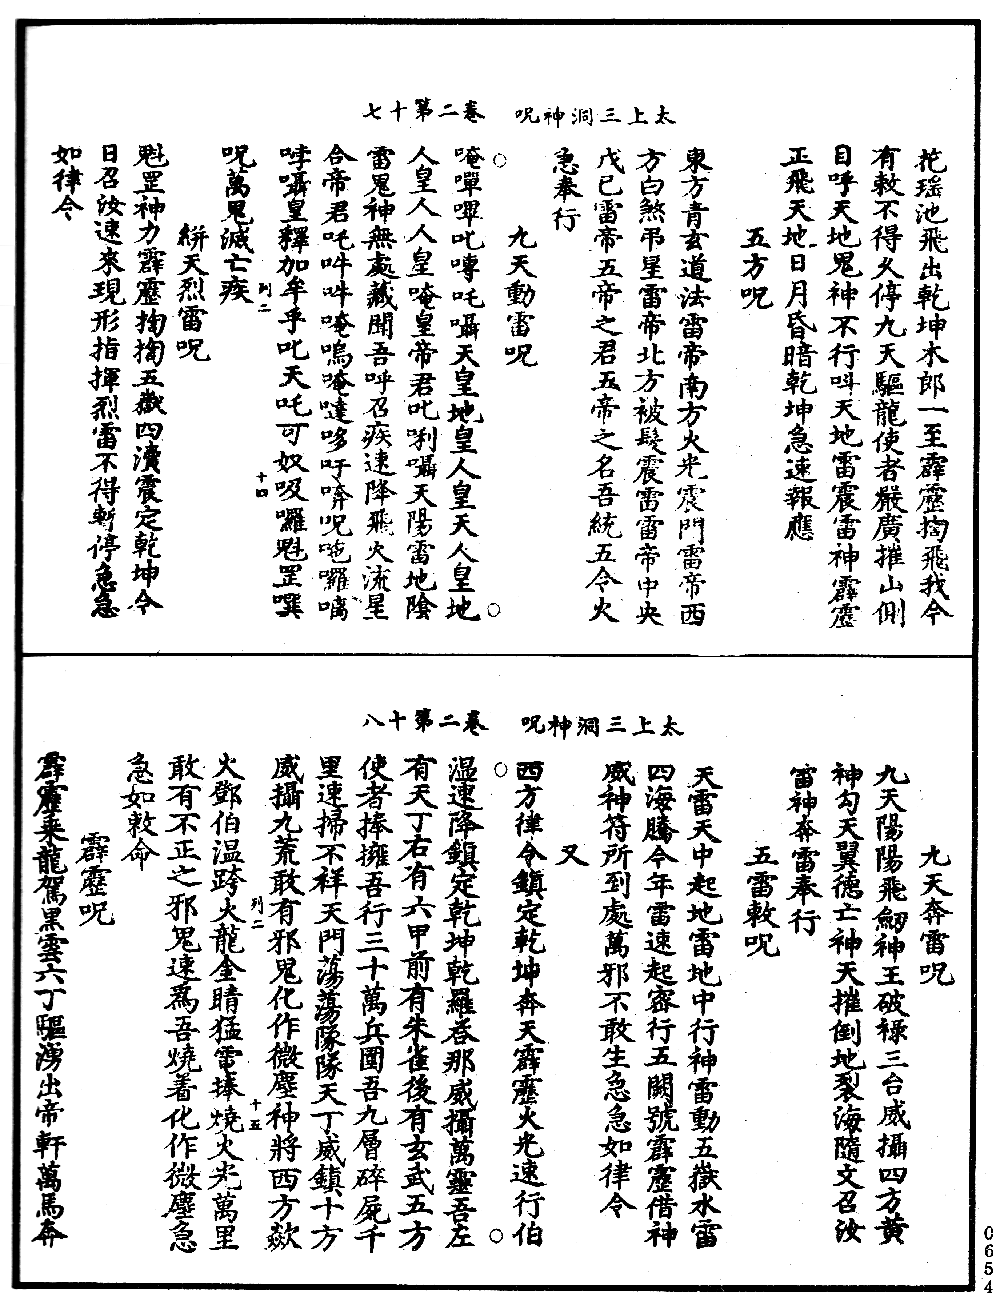 太上三洞神呪　卷二第十七
花瑶池飛出乾坤木郎一至霹靂掏飛我今
有敕不得久停九天驅龍使者嚴廣摧山側
目呼天地鬼神不行呌天地雷震雷神霹靂
正飛天地日月昏暗乾坤急速報應
五方呪
東方青玄道法雷帝南方火光震門雷帝西
方白煞吊星雷帝北方被髮震雷雷帝中央
戊己雷帝五帝之君五帝之名吾統五令火
急奉行
九天動雷呪
唵嘽嘽叱嘑吒囁天皇地皇人皇天人皇地
人皇人人皇唵皇帝君叱唎囁天陽雷地陰
雷鬼神無處藏聞吾呼召疾速降飛火流星
合帝君吒吽吽唵嗚唵噠哆吁嗬呪唵囉嗬
哱囁皇釋加牟乎叱天吒可奴吸囉魁罡噀
呪萬鬼滅亡疾
列二
十四
絣天烈雷呪
魁罡神力霹靂掏掏五嶽四瀆震定乾坤令
日召汝速來現形指揮烈雷不得暫停急急
如律令
太上三洞神呪　卷二第十八
九天奔雷呪
九天陽陽飛劒神王破祿三台威攝四方黃
神勾天翼德亡神天摧倒地裂海隨文召汝
雷神奔雷奉行
五雷敕呪
天雷天中起地雷地中行神雷動五嶽水雷
四海騰令年雷速起宻行五闕號霹靂借神
威神符所到處萬邪不敢生急急如律令
又
西方律令鎮定乾坤奔天霹靂火光速行伯
温速降鎮定乾坤乾羅答那威攝萬靈吾左
有天丁右有六甲前有朱雀後有玄武五方
使者捧擁吾行三十萬兵圍吾九層碎屍千
里速掃不祥天門蕩蕩隊隊天丁威鎮十方
威攝九荒敢有邪鬼化作微塵神將西方歘
火鄧伯温跨火龍金睛猛電捧燒火光萬里
列二
十五
敢有不正之邪鬼速爲吾燒着化作微塵急
急如敕命
霹靂呪
霹靂乘龍駕黑雲六丁驅湧出帝軒萬馬奔
0654